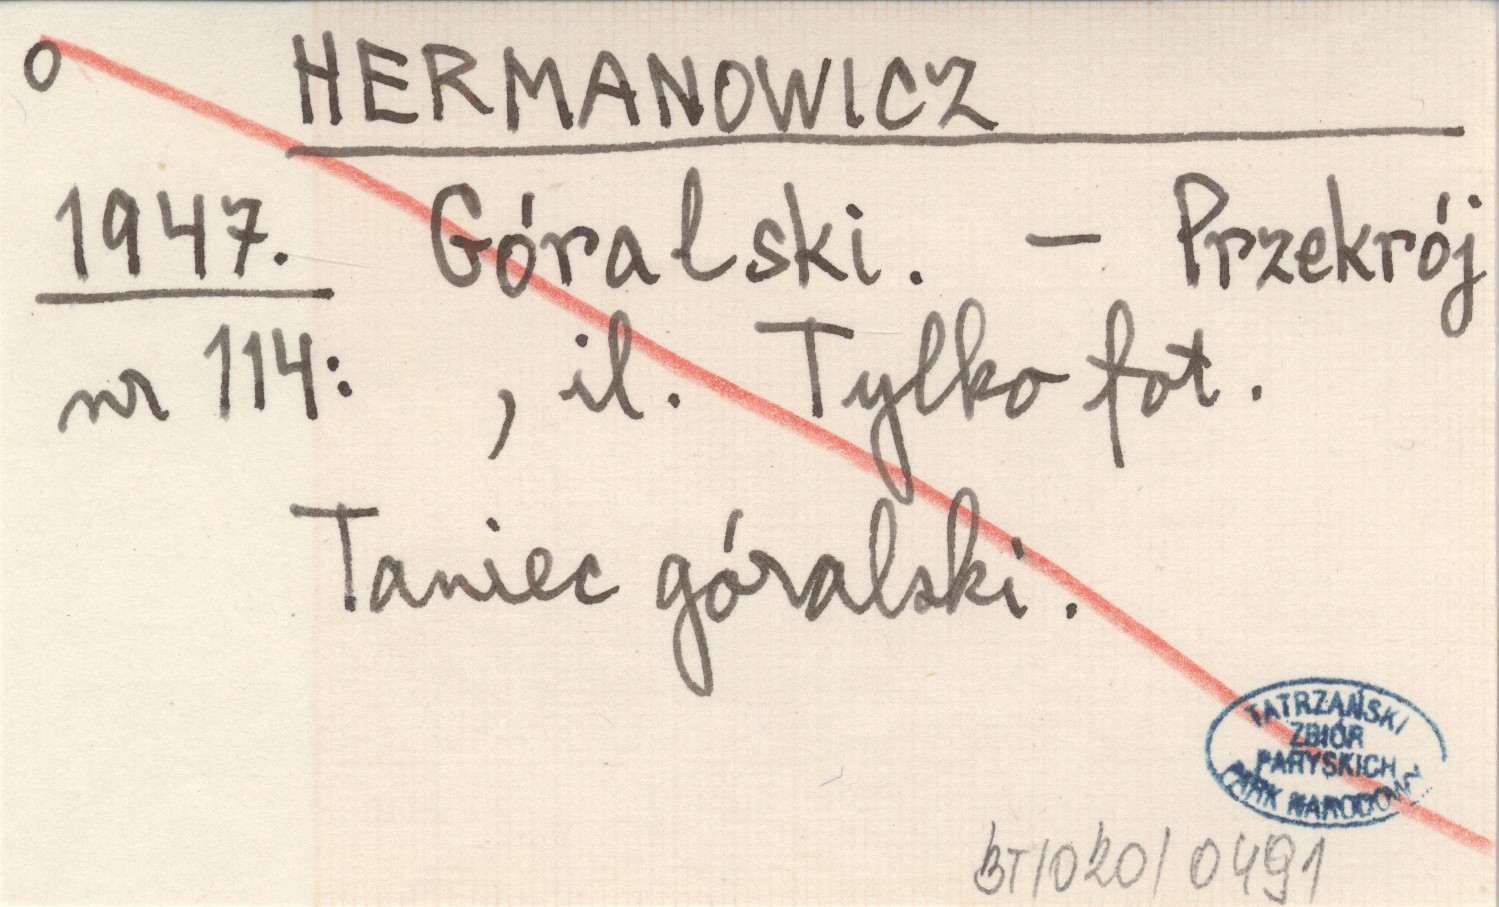 o HERMANOWICZ
1947. Góralski. — Przekrój
nr 114: , il. Tylko fot.
Taniec góralski.
TATRZAŃSKI
ZBIÓR
PARYSKICH
PARK NARODOWY
BT/020/0491